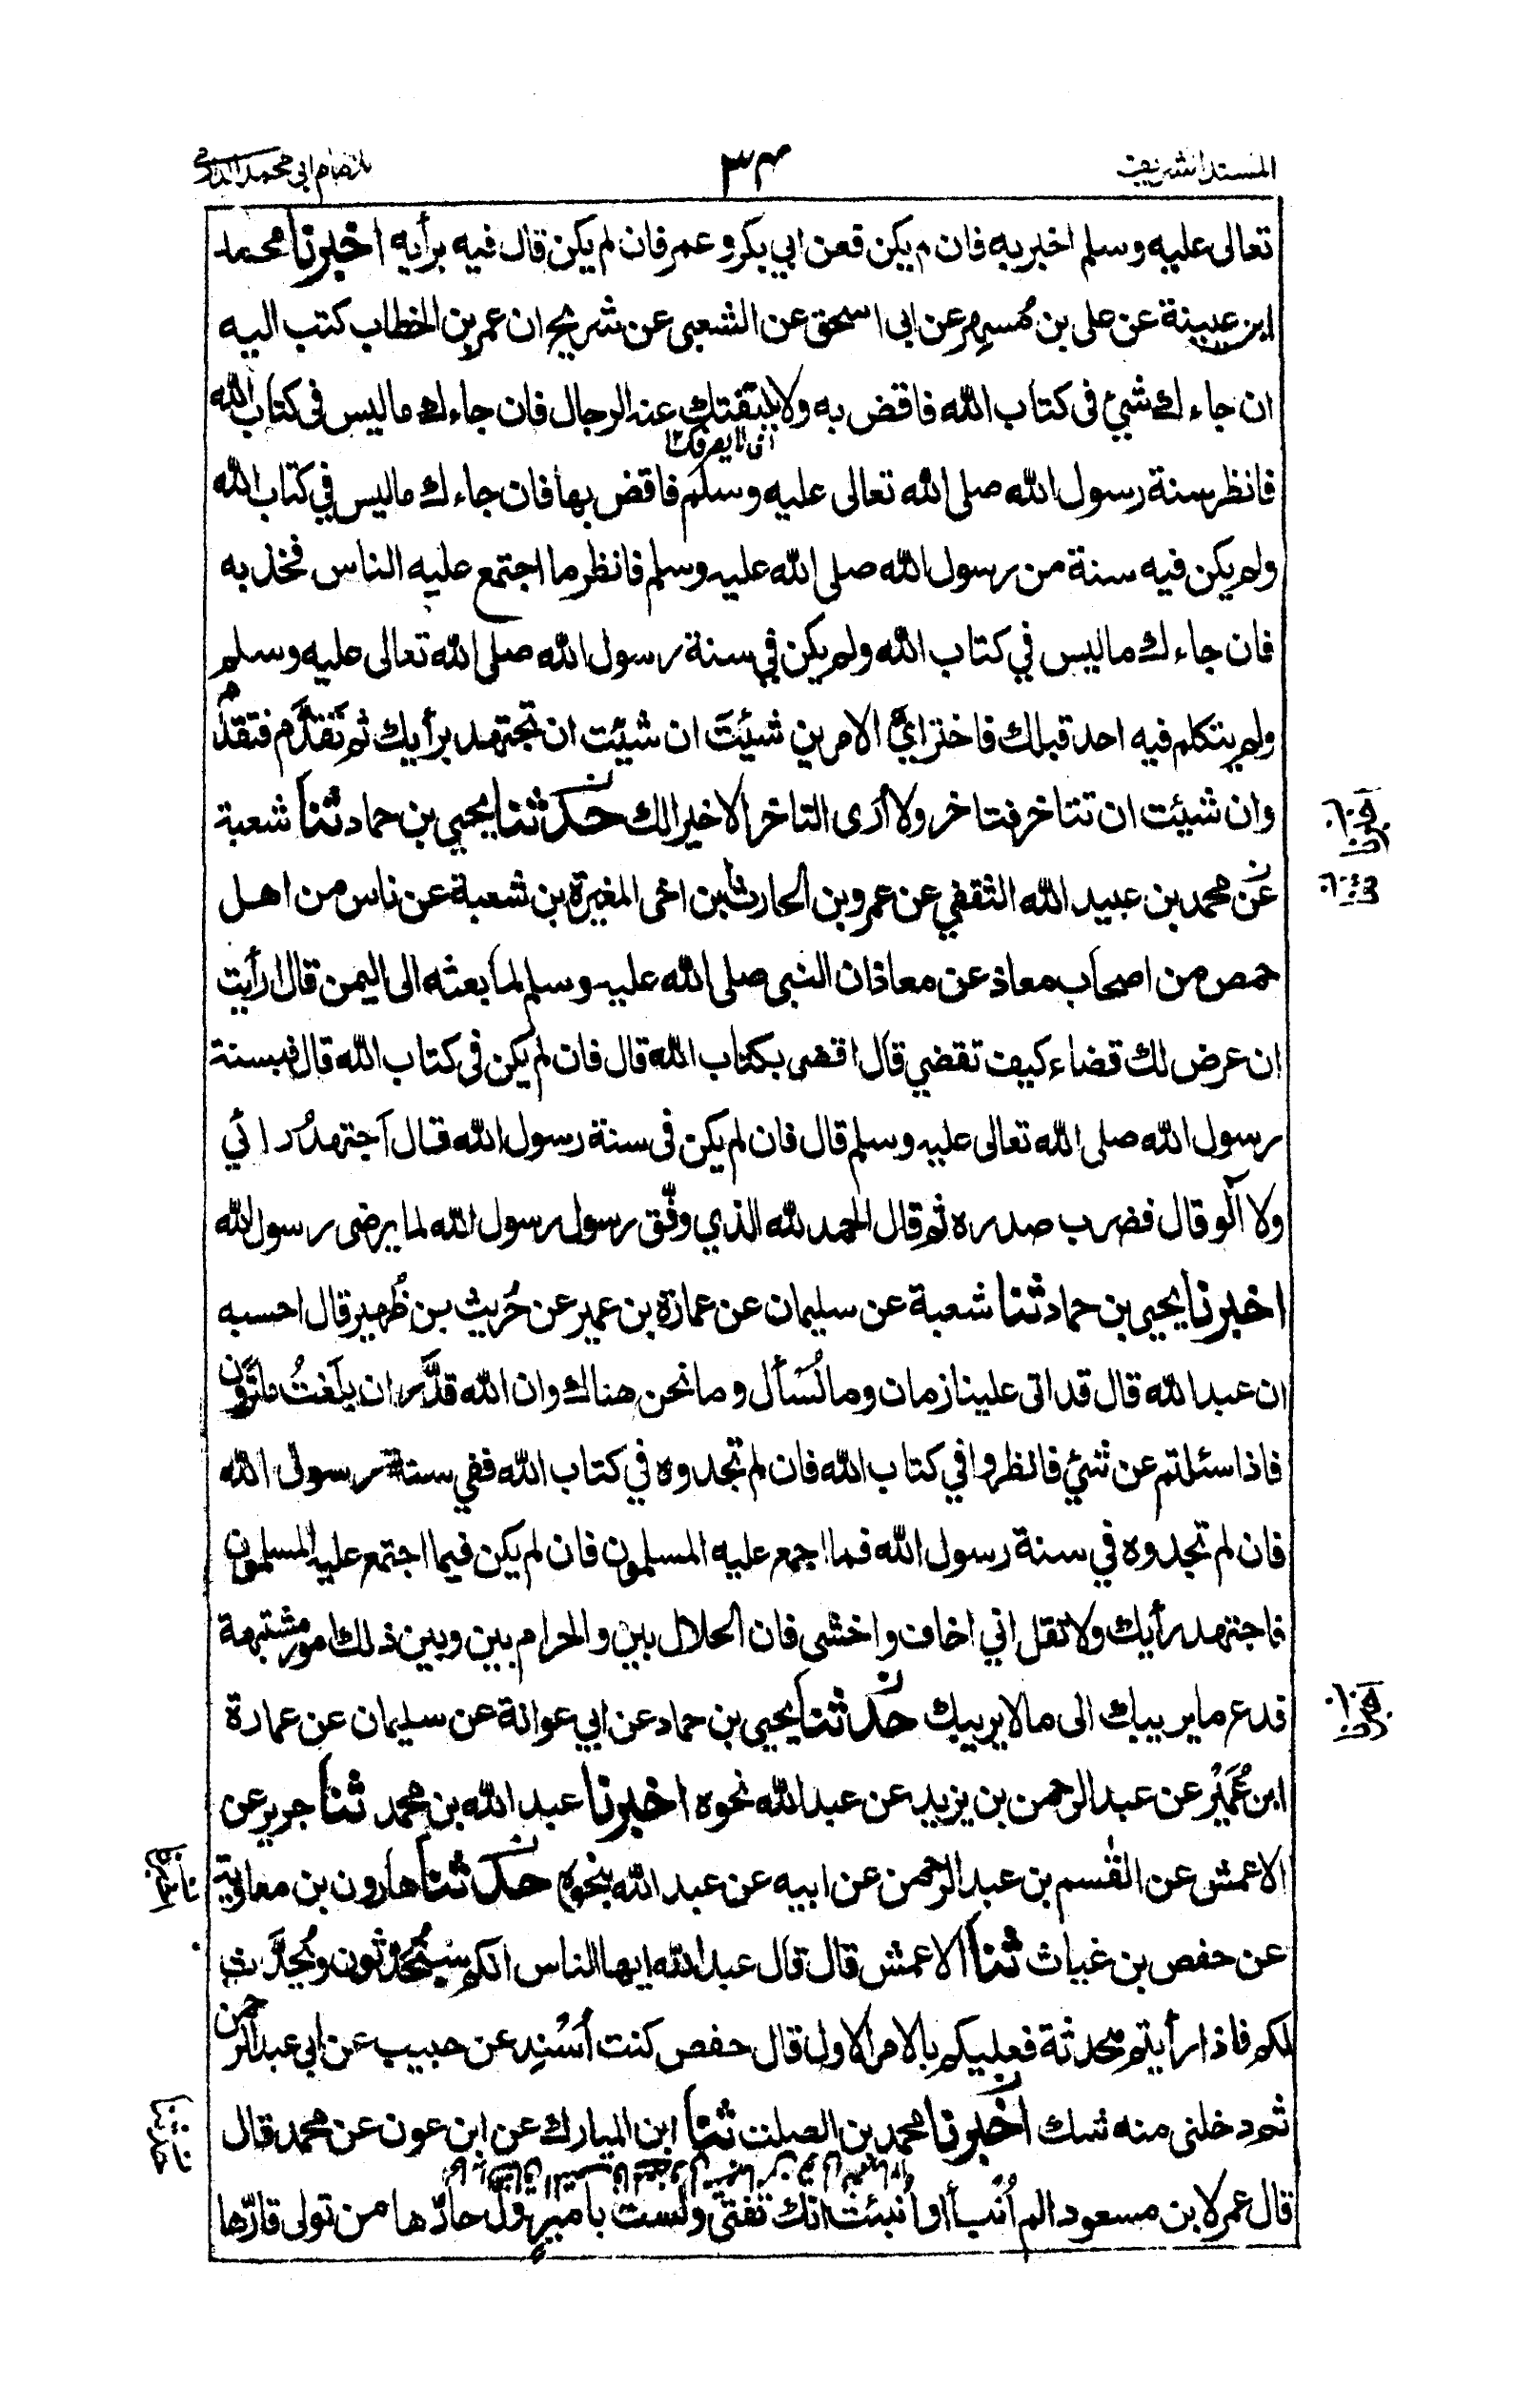 المسند الشريف
٣٤
للامام ابي محمد الدارمي
تعالى عليه وسلم اخبر به فان م يكن فعن ابي بكر و عمر فان لم يكن قال فيه برأيه اخبرنا محمد
ابن عيينة عن على بن مُسهِر عن ابى اسحق عن الشعبى عن شريح ان عمر بن الخطاب كتب اليه
ان جاءك شئ فى كتاب الله فاقض به ولا يلتفتك عنه الرجال فان جاءك ما ليس فى كتاب الله
اى لا يصرفك
فانظر سنة رسول الله صلى الله تعالى عليه وسلم فاقض بها فان جاءك ما ليس في كتاب الله
ولم يكن فيه سنة من رسول الله صلى الله عليه وسلم فانظر ما اجتمع عليه الناس فخذ به
فان جاءك ما ليس في كتاب الله ولم يكن في سنة رسول الله صلى الله تعالى عليه وسلم
ولم يتكلم فيه احد قبلك فاختر ايَّ الامرين شئتَ ان شئت ان تجتهد برأيك ثم تَقدَّم فتقدم
وان شئت ان تتاخر فتاخر ولا أرى التاخر الا خيرا لك حدثنا يحيي بن حماد ثنا شعبة
عن محمد بن عبيد الله الثقفي عن عمرو بن الحارث ابن اخى المغيرة بن شعبة عن ناس من اهل
حمص من اصحاب معاذ عن معاذ ان النبى صلى الله عليه وسلم لما بعثه الى اليمن قال ارأيت
ان عرض لك قضاء كيف تقضي قال اقضى بكتاب الله قال فان لم يكن فى كتاب الله قال فبسنة
رسول الله صلى الله تعالى عليه وسلم قال فان لم يكن فى سنة رسول الله قال اَجتهدُ رائي
ولا آلو قال فضرب صدره ثم قال الحمد لله الذي وفّق رسول رسول الله لما يرضى رسول الله
اخبرنا يحيى بن حماد ثنا شعبة عن سليمان عن عمارة بن عمير عن حُريث بن ظُهير قال احسبه
ان عبد الله قال قد اتى علينا زمان وما نُسَأل وما نحن هناك وان الله قدَّر ان بلَغتُ ما تَرون
فاذا سئلتم عن شئ فانظروا في كتاب الله فان لم تجدوه في كتاب الله ففي سنة رسول الله
فان لم تجدوه في سنة رسول الله فما اجمع عليه المسلمون فان لم يكن فيما اجتمع عليه المسلمون
فاجتهد رأيك ولا تقل اني اخاف واخشى فان الحلال بين والحرام بين وبين ذلك امور مشتبهة
فدع ما يريبك الى ما لا يريبك حدثنا يحيى بن حماد عن ابي عوانة عن سليمان عن عمارة
ابن عُمَيْر عن عبد الرحمن بن يزيد عن عبد الله نحوه اخبرنا عبد الله بن محمد ثنا جرير عن
الاعمش عن القٰسم بن عبد الرحمن عن ابيه عن عبد الله بنحوه حدثنا هارون بن معاوية
عن حفص بن غياث ثنا الاعمش قال قال عبد الله ايها الناس انكم ستُحدثون ويُحدَّث
لكم فاذا رأيتم محدثة فعليكم بالامر الاول قال حفص كنت اُسْنِد عن حبيب عن ابى عبد الرحمن
ثم دخلنى منه شك اخبرنا محمد بن الصلت ثنا ابن المبارك عن ابن عون عن محمد قال
قال عمر لابن مسعود الم اُنبأ او انبئت انك تفتى ولست بامير ولِّ حارّها من تولى قارّها